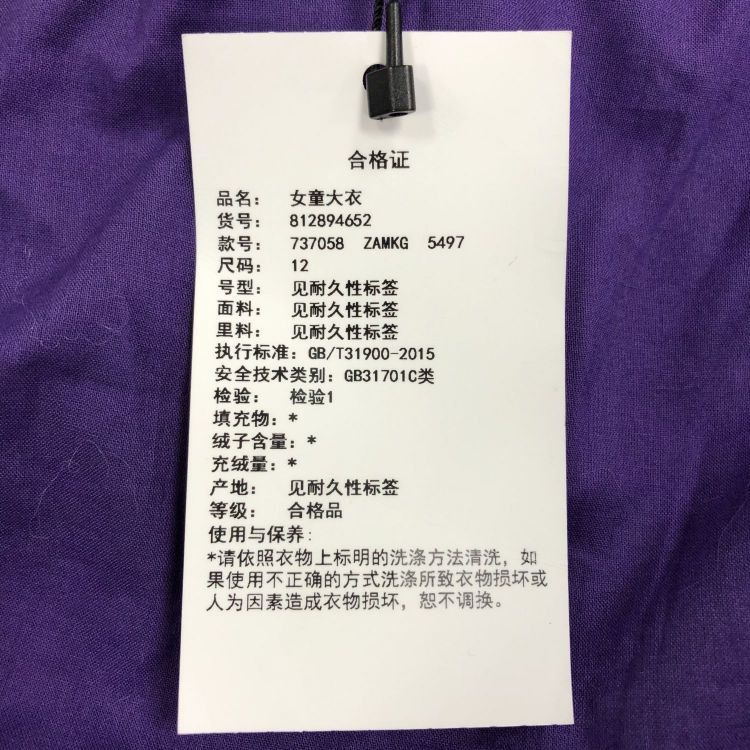 合格证
品名： 女童大衣
货号： 812894652
款号： 737058 ZAMKG 5497
尺码： 12
号型： 见耐久性标签
面料： 见耐久性标签
里料： 见耐久性标签
执行标准：GB/T31900-2015
安全技术类别：GB31701C类
检验： 检验1
填充物：*
绒子含量：*
充绒量：*
产地： 见耐久性标签
等级： 合格品
使用与保养:
*请依照衣物上标明的洗涤方法清洗，如
果使用不正确的方式洗涤所致衣物损坏或
人为因素造成衣物损坏，恕不调换。